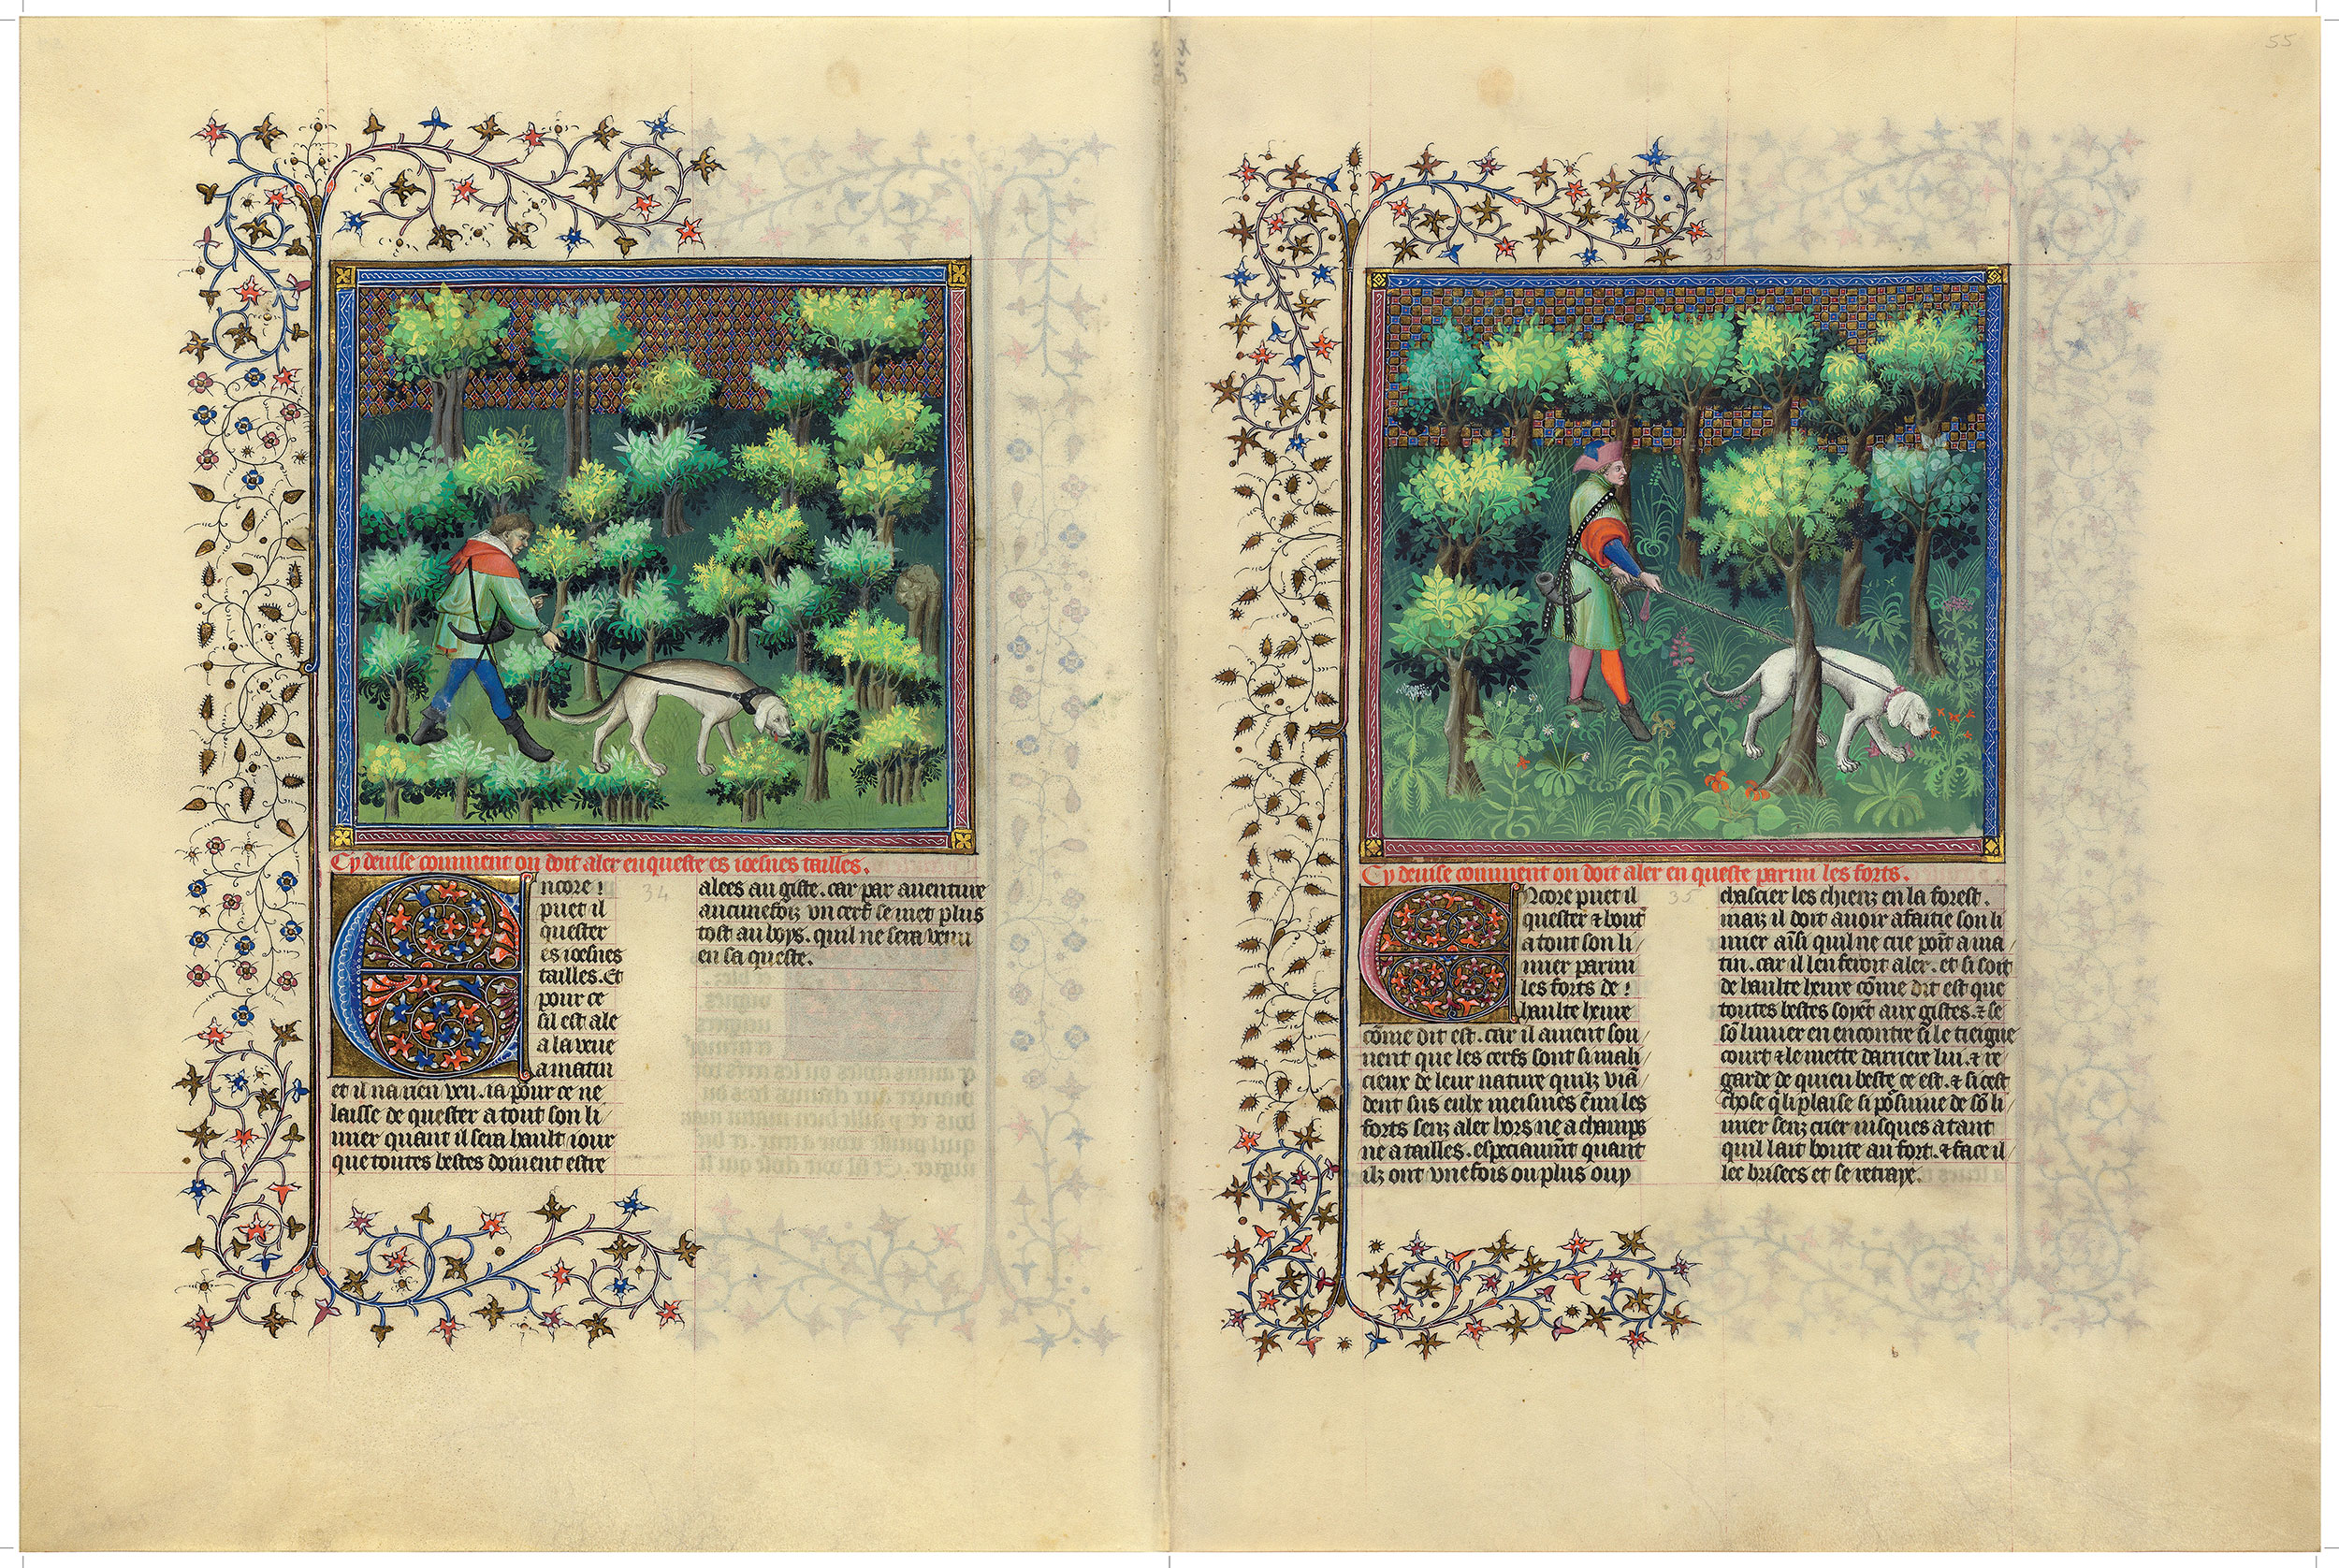 Cy deuise comment on doit aler enqueste es ioesnes tailles.
Encore
puet il
quester
es ioesnes
tailles. Et
pour ce
sil est ale
a la veue
a matin
et il na rien veu. ia pour ce ne
laisse de quester a tout son li
mier quant il sera hault iour
que toutes bestes doiuent estre
34
alees au giste. car par auenture
aucunefoiz vn cerf se met plus
tost au boys. quil ne sera venu
en sa queste.
55
35
Cy deuise comment on doit aler en queste parmi les forts.
Encore puet il
quester & bout
a tout son li/
mier parmi
les forts de
haulte heure
cõme dit est. car il auient sou/
uent que les cerfs sont si mali/
cieux de leur nature quilz viã/
dent sus eulx meismes ẽmi les
forts senz aler hors ne a champs
ne a tailles. especiaumt quant
ilz ont vne fois ou plus ouy
35
chascier les chienz en la forest.
maiz il doit auoir afaitie son li
mier aĩsi quil ne crie point a ma/
tin. car il len feroit aler. et si soit
de haulte heure cõme dit est que
toutes bestes soyẽt aux gistes. & se
sõ limier en encontre si le tieigne
court & le mette darriere lui. & re/
garde de quieu beste ce est. & si cest
chose q li plaise si põsuiue de sõ li/
mier senz crier iusques a tant
quil lait boute au fort. & face il
lec brisees et se retraye.